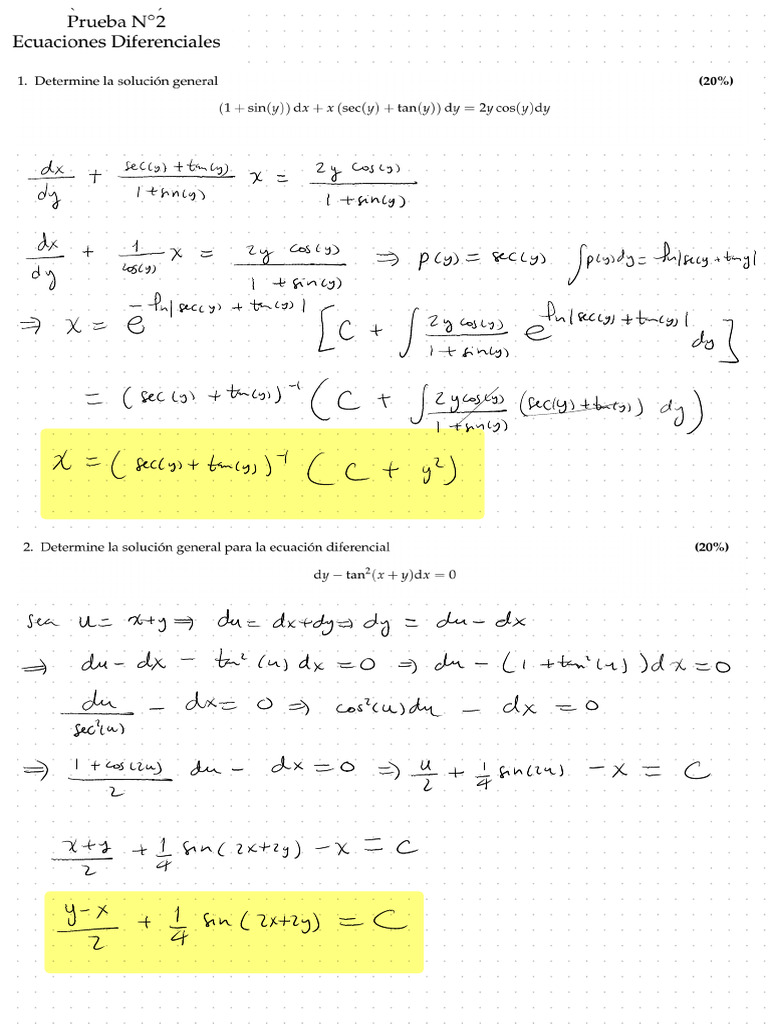 Prueba N°2
Ecuaciones Diferenciales
1. Determine la solución general (20%)
(1 + sin(y)) dx + x (sec(y) + tan(y)) dy = 2y cos(y)dy
dx/dy + (sec(y) + tan(y))/(1 + sin(y)) x = (2y cos(y))/(1 + sin(y))
dx/dy + 1/cos(y) x = (2y cos(y))/(1 + sin(y)) ⇒ p(y) = sec(y) ∫p(y)dy = ln|secy + tany|
⇒ x = e^(-ln|sec(y) + tan(y)|) [C + ∫ (2y cos(y))/(1 + sin(y)) e^(ln|sec(y) + tan(y)|) dy]
= (sec(y) + tan(y))^-1 (C + ∫ (2y cos(y))/(1 + sin(y)) (sec(y) + tan(y)) dy)
x = (sec(y) + tan(y))^-1 (C + y²)
2. Determine la solución general para la ecuación diferencial (20%)
dy − tan²(x + y)dx = 0
sea u = x+y ⇒ du = dx+dy ⇒ dy = du − dx
⇒ du − dx − tan²(u) dx = 0 ⇒ du − (1 + tan²(u)) dx = 0
du/sec²(u) − dx = 0 ⇒ cos²(u) du − dx = 0
⇒ (1 + cos(2u))/2 du − dx = 0 ⇒ u/2 + 1/4 sin(2u) − x = C
(x+y)/2 + 1/4 sin(2x+2y) − x = C
(y−x)/2 + 1/4 sin(2x+2y) = C